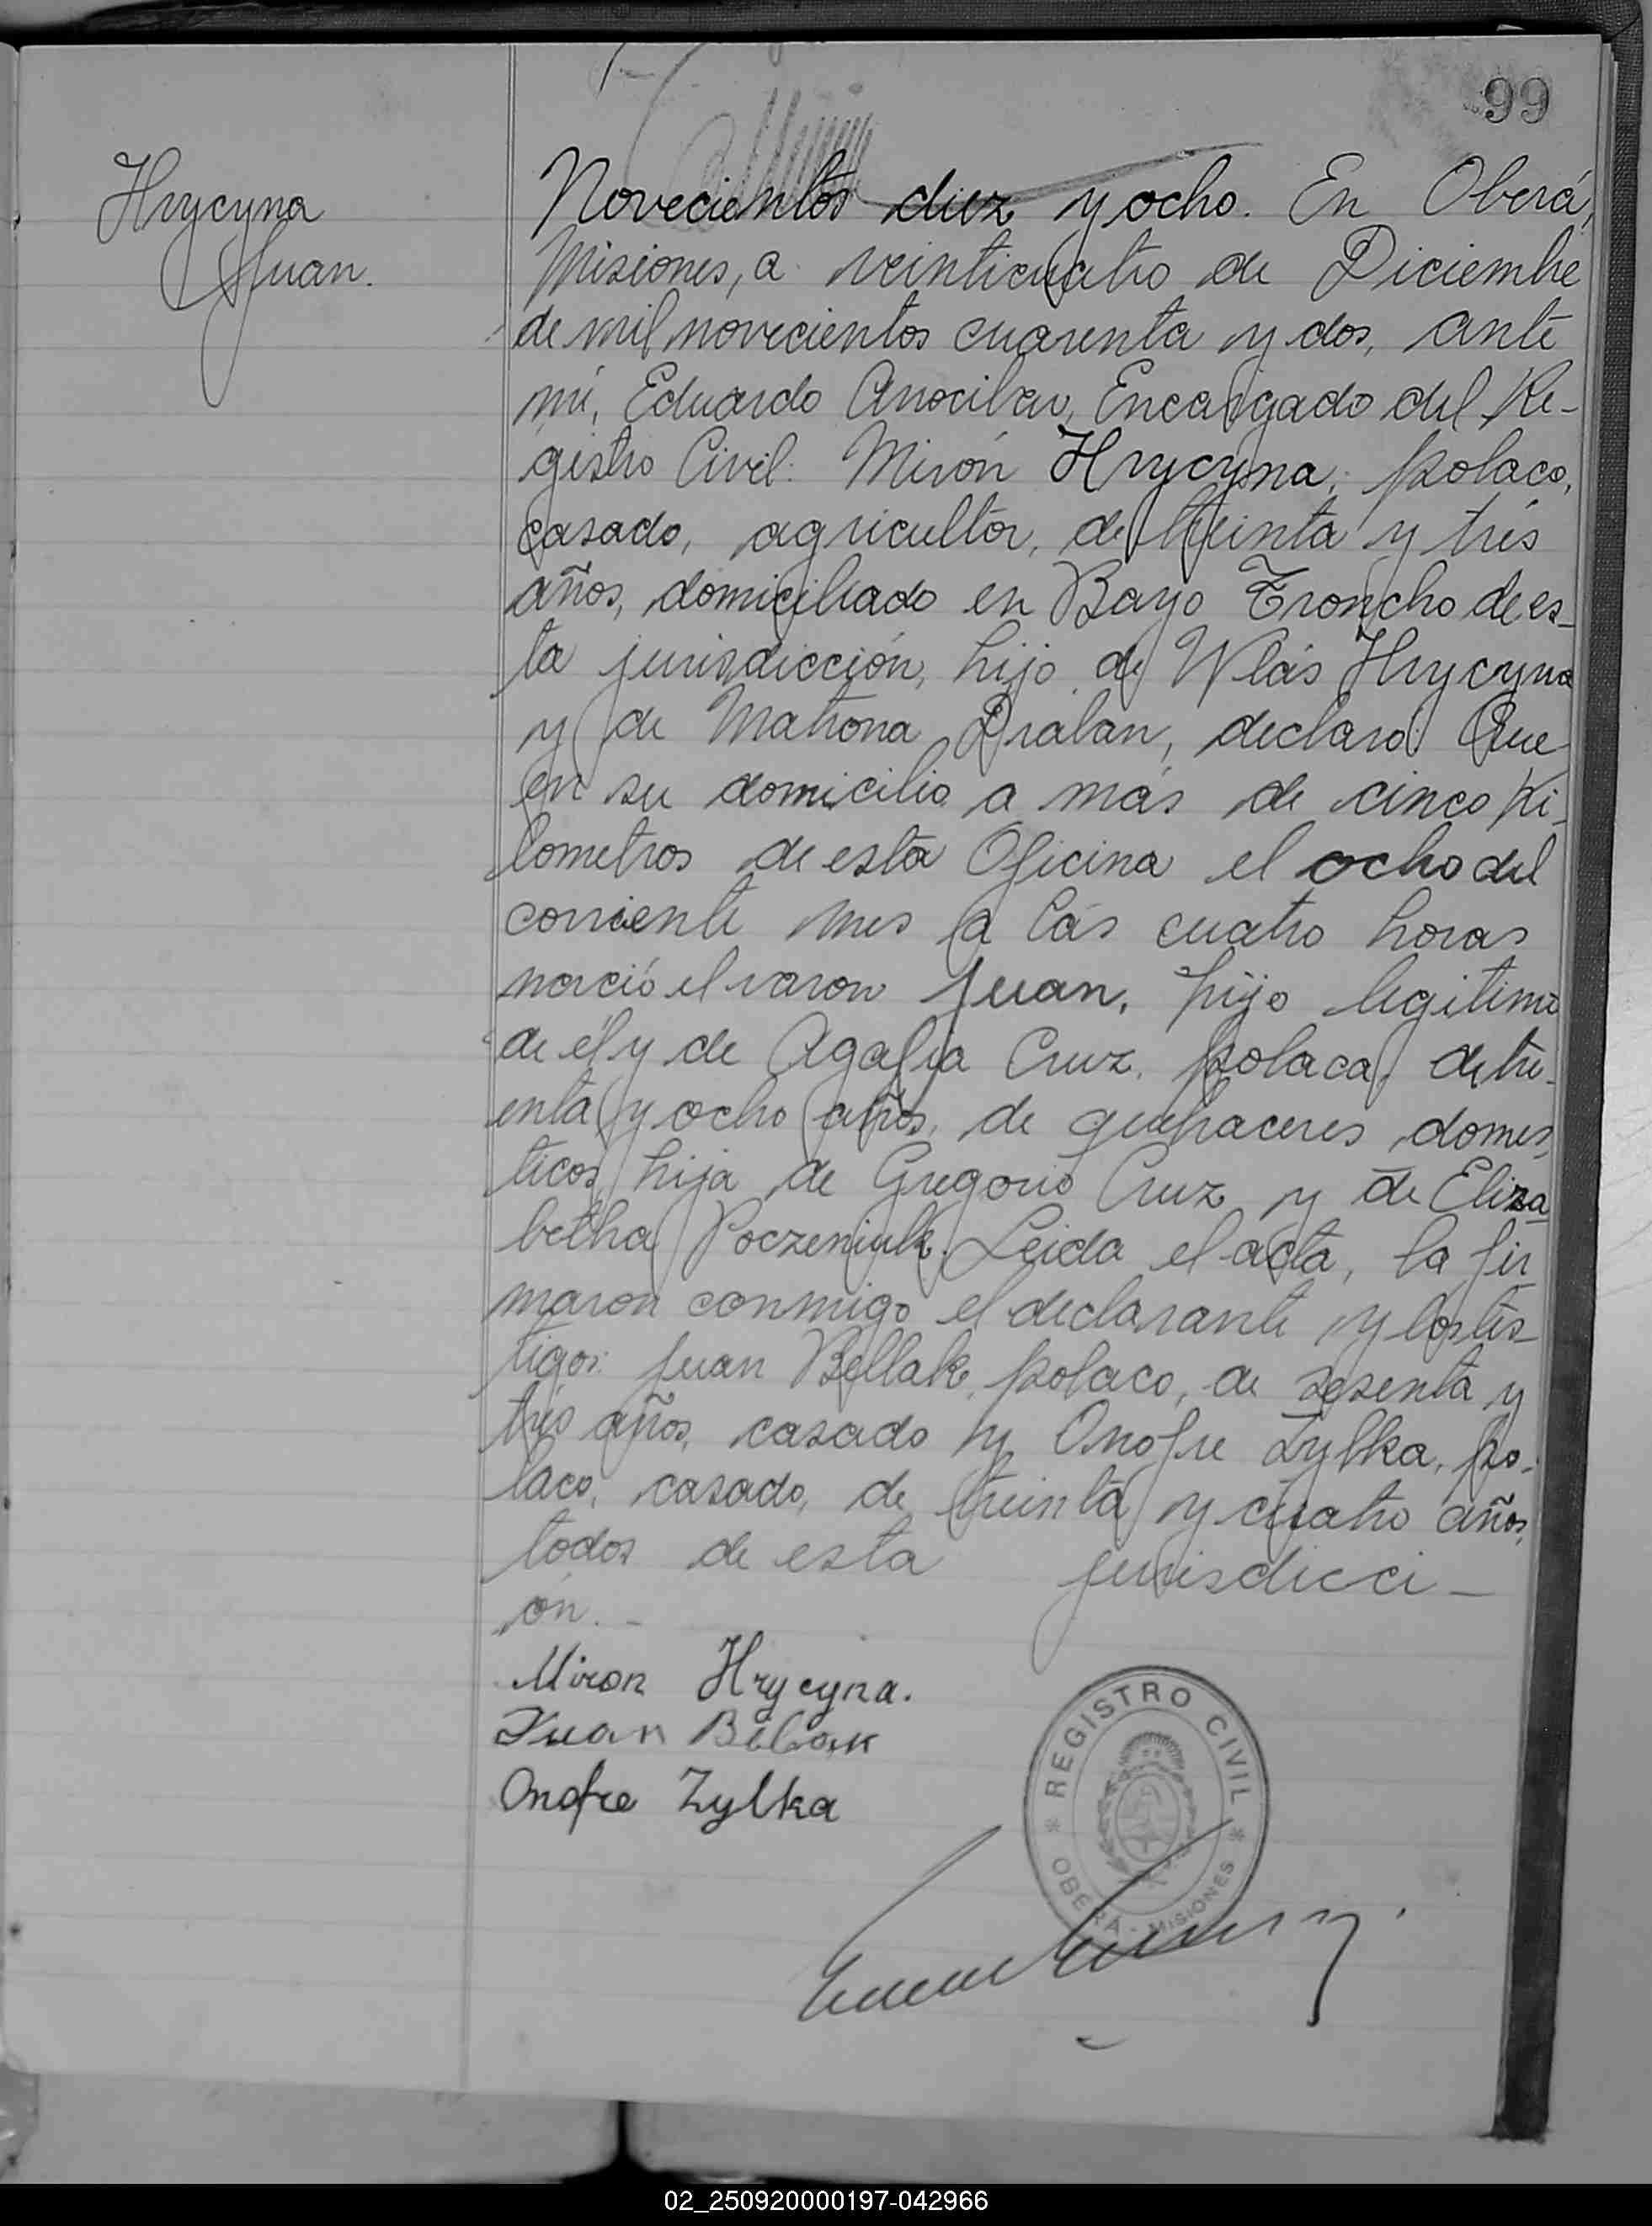 99
Hrycyna
Juan.
Novecientos diez y ocho. En Oberá,
Misiones, a veinticuatro de Diciembre
de mil novecientos cuarenta y dos, ante
mí, Eduardo Encargado del Re-
gistro Civil: Mirón Hrycyna, polaco,
casado, agricultor, de treinta y trés
años, domiciliado en Bayo Troncho de es-
ta jurisdicción, hijo de Wlás Hrycyna
y de Matrona Dralan, declaró: Que
en su domicilio a más de cinco Ki-
lometros de esta Oficina el ocho del
corriente mes a lás cuatro horas
nació el varon Juan, hijo legitimo
de él y de Agafia Cruz, polaca, de tre-
inta y ocho años, de quehaceres domes-
ticos, hija de Gregorio Cruz y de Eliza-
betha Poczeniuk. Leida el acta, la fir-
maron conmigo el declarante y los tes-
tigos: Juan Bellak, polaco, de sesenta y
trés años, casado y Onofre Zylka, po-
laco, casado, de treinta y cuatro años,
todos de esta jurisdicci-
ón.-
Miron Hrycyna.
Juan
Onofre Zylka
REGISTRO CIVIL
OBERÁ - MISIONES
02_250920000197-042966